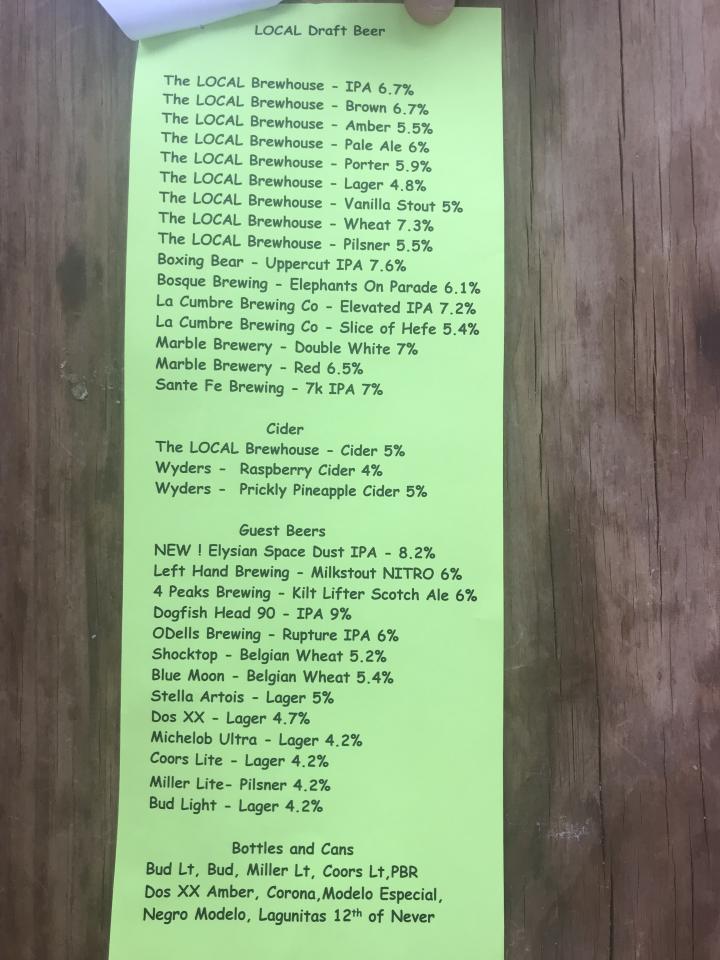 LOCAL Draft Beer
The LOCAL Brewhouse - IPA 6.7%
The LOCAL Brewhouse - Brown 6.7%
The LOCAL Brewhouse - Amber 5.5%
The LOCAL Brewhouse - Pale Ale 6%
The LOCAL Brewhouse - Porter 5.9%
The LOCAL Brewhouse - Lager 4.8%
The LOCAL Brewhouse - Vanilla Stout 5%
The LOCAL Brewhouse - Wheat 7.3%
The LOCAL Brewhouse - Pilsner 5.5%
Boxing Bear - Uppercut IPA 7.6%
Bosque Brewing - Elephants On Parade 6.1%
La Cumbre Brewing Co - Elevated IPA 7.2%
La Cumbre Brewing Co - Slice of Hefe 5.4%
Marble Brewery - Double White 7%
Marble Brewery - Red 6.5%
Sante Fe Brewing - 7k IPA 7%
Cider
The LOCAL Brewhouse - Cider 5%
Wyders - Raspberry Cider 4%
Wyders - Prickly Pineapple Cider 5%
Guest Beers
NEW ! Elysian Space Dust IPA - 8.2%
Left Hand Brewing - Milkstout NITRO 6%
4 Peaks Brewing - Kilt Lifter Scotch Ale 6%
Dogfish Head 90 - IPA 9%
ODells Brewing - Rupture IPA 6%
Shocktop - Belgian Wheat 5.2%
Blue Moon - Belgian Wheat 5.4%
Stella Artois - Lager 5%
Dos XX - Lager 4.7%
Michelob Ultra - Lager 4.2%
Coors Lite - Lager 4.2%
Miller Lite- Pilsner 4.2%
Bud Light - Lager 4.2%
Bottles and Cans
Bud Lt, Bud, Miller Lt, Coors Lt,PBR
Dos XX Amber, Corona,Modelo Especial,
Negro Modelo, Lagunitas 12th of Never